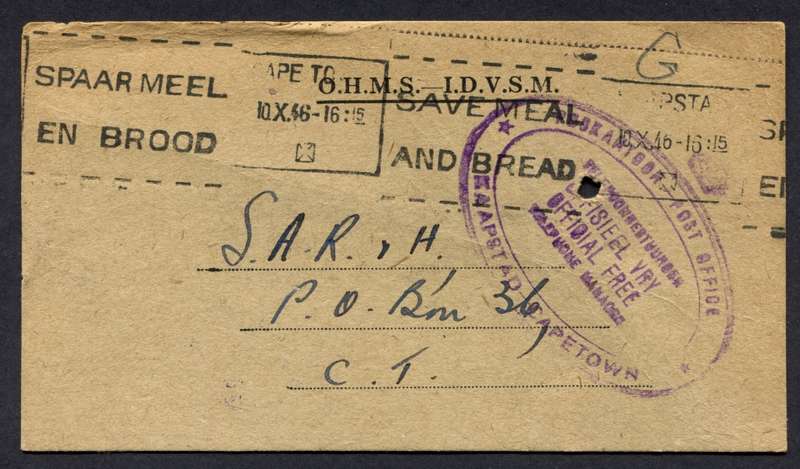 O.H.M.S. I.D.V.S.M.
SPAAR MEEL
EN BROOD
APE TO
10.X.46-16:15
SAVE MEAL
AND BREAD
APSTA
10.X.46-16:15
SP
EN
G
POSKANTOOR POST OFFICE
KAAPSTAD CAPETOWN
OFFISIEEL VRY
OFFICIAL FREE
TELEPHONE MANAGER
S.A.R. & H.
P.O. Box 36,
C.T.